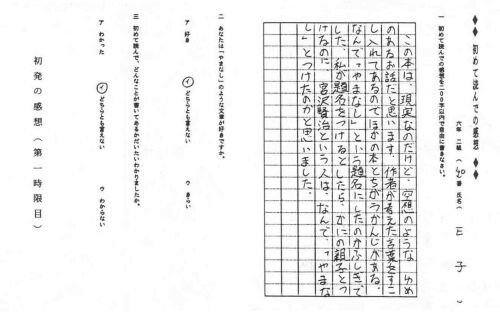 ◆◆ 初めて読んでの感想 ◆◆
六年 二組 ( 40 番 氏名) E 子 )
一 初めて読んでの感想を二〇〇字以内で自由に書きなさい。
この本は、現実なのだけど、空想のような ゆめ
のあるお話だと思います。作者が考えた言葉をすこ
し入れてあるのでほかの本とちがうかんじがある。
なんで「やまなし」という題名にしたのかふしぎで
した。私が題名をつけるとしたら、かにの親子とつ
けるのに 宮沢賢治という人は、なんで、「やまな
し」とつけたのかと思いました。
二 あなたは「やまなし」のような文章が好きですか。
ア 好き イ どちらとも言えない ウ きらい
三 初めて読んで、どんなことが書いてあるかだいたいわかりましたか。
ア わかった イ どちらとも言えない ウ わからない
初発の感想(第一時限目)